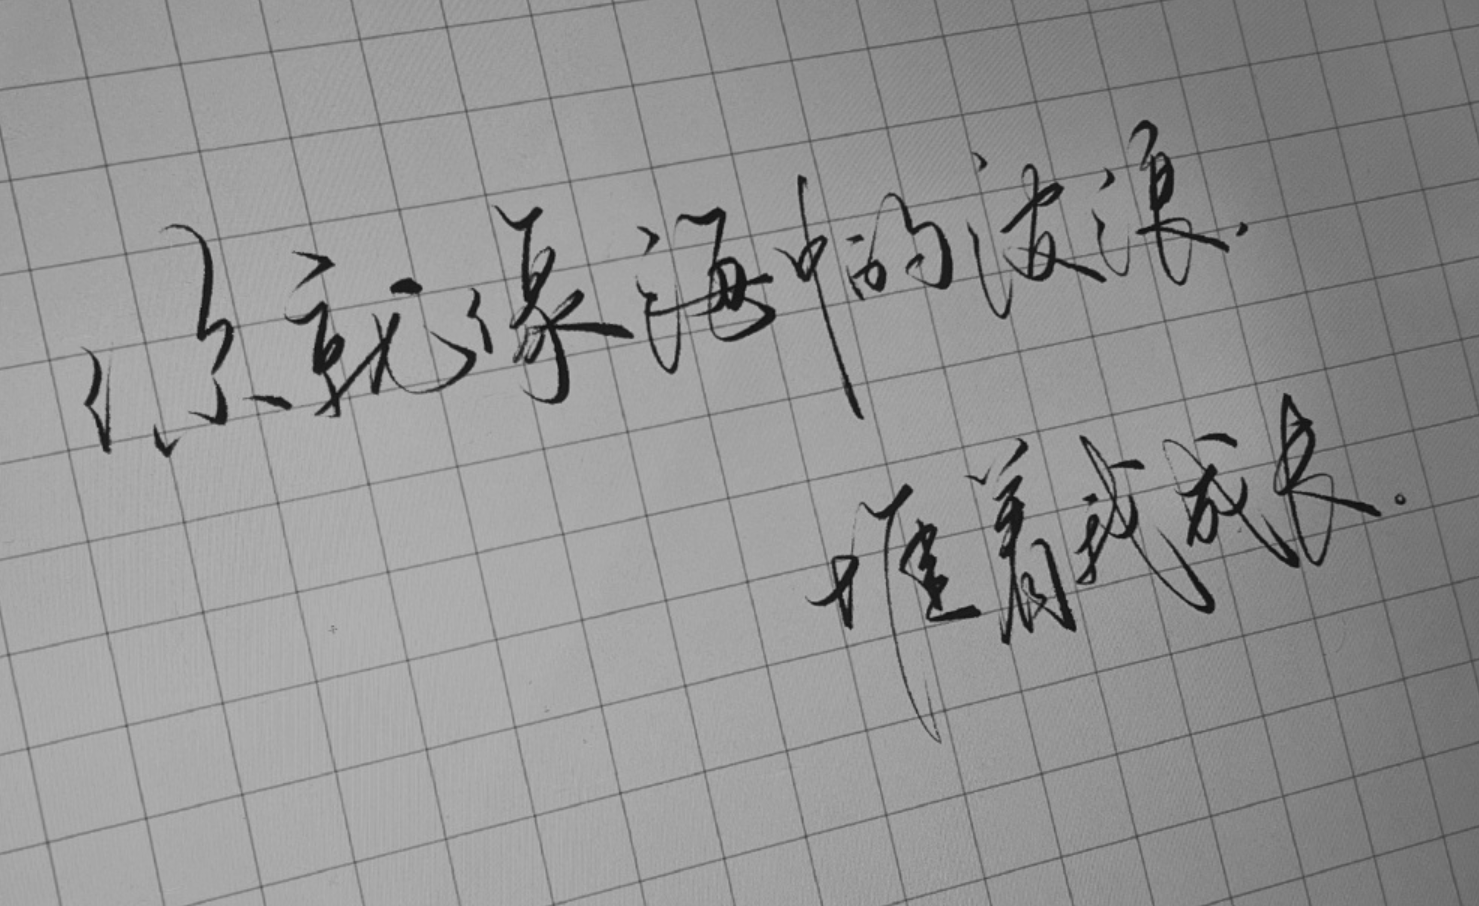 你就像海中的波浪.
推着我成长.